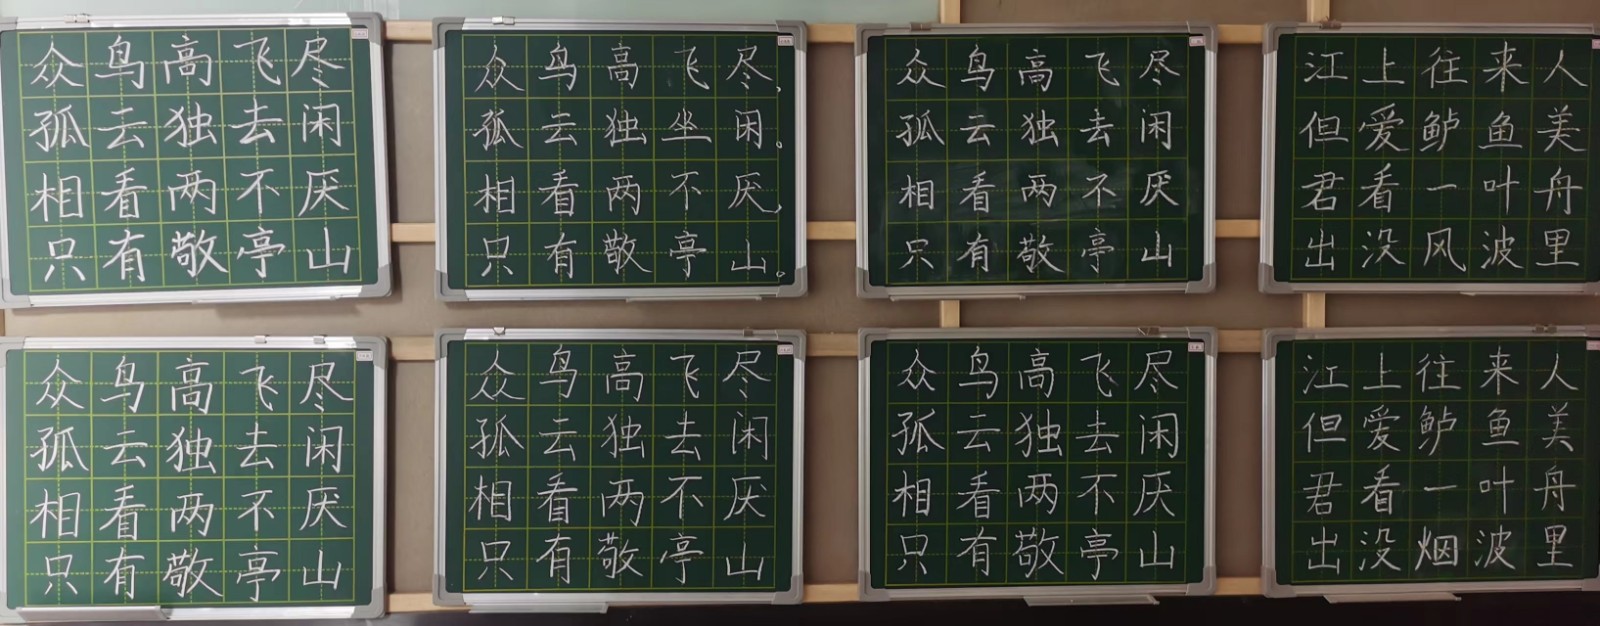 众鸟高飞尽
孤云独去闲
相看两不厌
只有敬亭山
众鸟高飞尽,
孤云独坐闲。
相看两不厌,
只有敬亭山。
众鸟高飞尽
孤云独去闲
相看两不厌
只有敬亭山
江上往来人
但爱鲈鱼美
君看一叶舟
出没风波里
众鸟高飞尽
孤云独去闲
相看两不厌
只有敬亭山
众鸟高飞尽
孤云独去闲
相看两不厌
只有敬亭山
众鸟高飞尽
孤云独去闲
相看两不厌
只有敬亭山
江上往来人
但爱鲈鱼美
君看一叶舟
出没烟波里